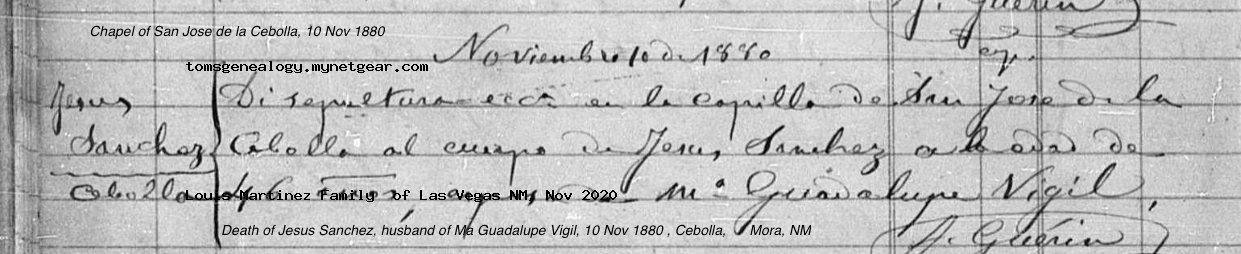 J. Guerin
Chapel of San Jose de la Cebolla, 10 Nov 1880
Noviembre 10 de 1880
tomsgenealogy.mynetgear.com
Jesus
Sanchez
Cebolla
Di sepultura ecca en la capilla de San Jose de la
Cebolla al cuerpo de Jesus Sanchez a la edad de
Louis Martinez Family of Las Vegas NM, Nov 2020
Ma Guadalupe Vigil,
Death of Jesus Sanchez, husband of Ma Guadalupe Vigil, 10 Nov 1880 , Cebolla, Mora, NM
J. Guérin